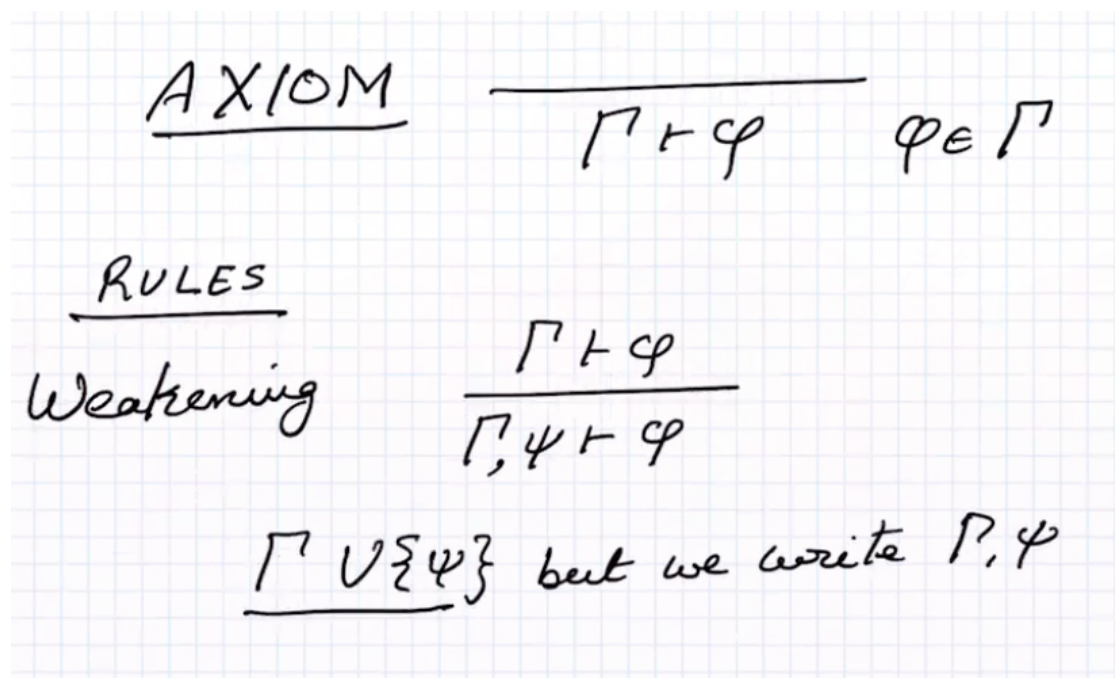 AXIOM Γ ⊢ φ φ ∈ Γ
RULES
Weakening Γ ⊢ φ
Γ, ψ ⊢ φ
Γ ∪ {ψ} but we write Γ, ψ